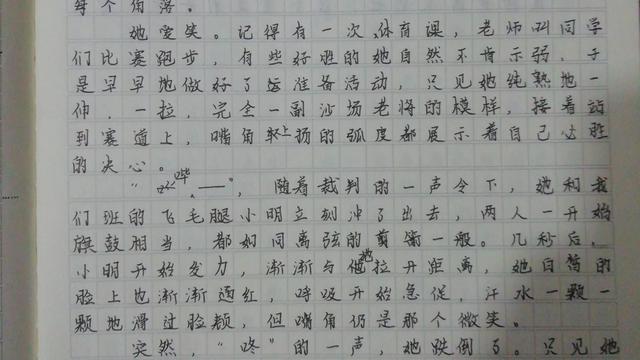 每个角落。
她爱笑。记得有一次体育课，老师叫同学
们比赛跑步，有些好胜的她自然不肯示弱，于
是早早地做好了运准备活动，只见她纯熟地一
伸，一拉，完全一副沙场老将的模样，接着站
到赛道上，嘴角轻上扬的弧度都展示着自己必胜
的决心。
“哔——”，随着裁判的一声令下，她和我
们班的飞毛腿小明立刻冲了出去，两人一开始
旗鼓相当，都如同离弦的箭一般。几秒后，
小明开始发力，渐渐与她拉开距离，她白皙的
脸上也渐渐透红，呼吸开始急促，汗水一颗一
颗地滑过脸颊，但嘴角仍是那个微笑。
突然，“咚”的一声，她跌倒了。只见她